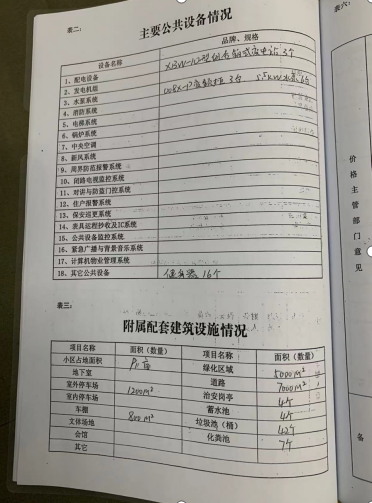 表二:
主要公共设备情况
设备名称 品牌、规格
1、配电设备
2、发电机组
3、水泵系统
4、消防系统
5、电梯系统
6、锅炉系统
7、中央空调
8、新风系统
9、周界防范报警系统
10、闭路电视监控系统
11、对讲与防盗门控系统
12、住户报警系统
13、保安巡更系统
14、表具远程抄收及IC系统
15、公共设备监控系统
16、紧急广播与背景音乐系统
17、计算机物业管理系统
18、其它公共设备 健身器 16个
表三:
附属配套建筑设施情况
项目名称 面积(数量) 项目名称 面积(数量)
小区占地面积 绿化区域 5000M²
地下室 道路 7000M²
室外停车场 1200M² 治安岗亭 4个
室内停车场 蓄水池 4个
车棚 800M² 垃圾池(桶) 42个
文体场地 化粪池 7个
会馆
其它
表六:
价格主管部门意见
备